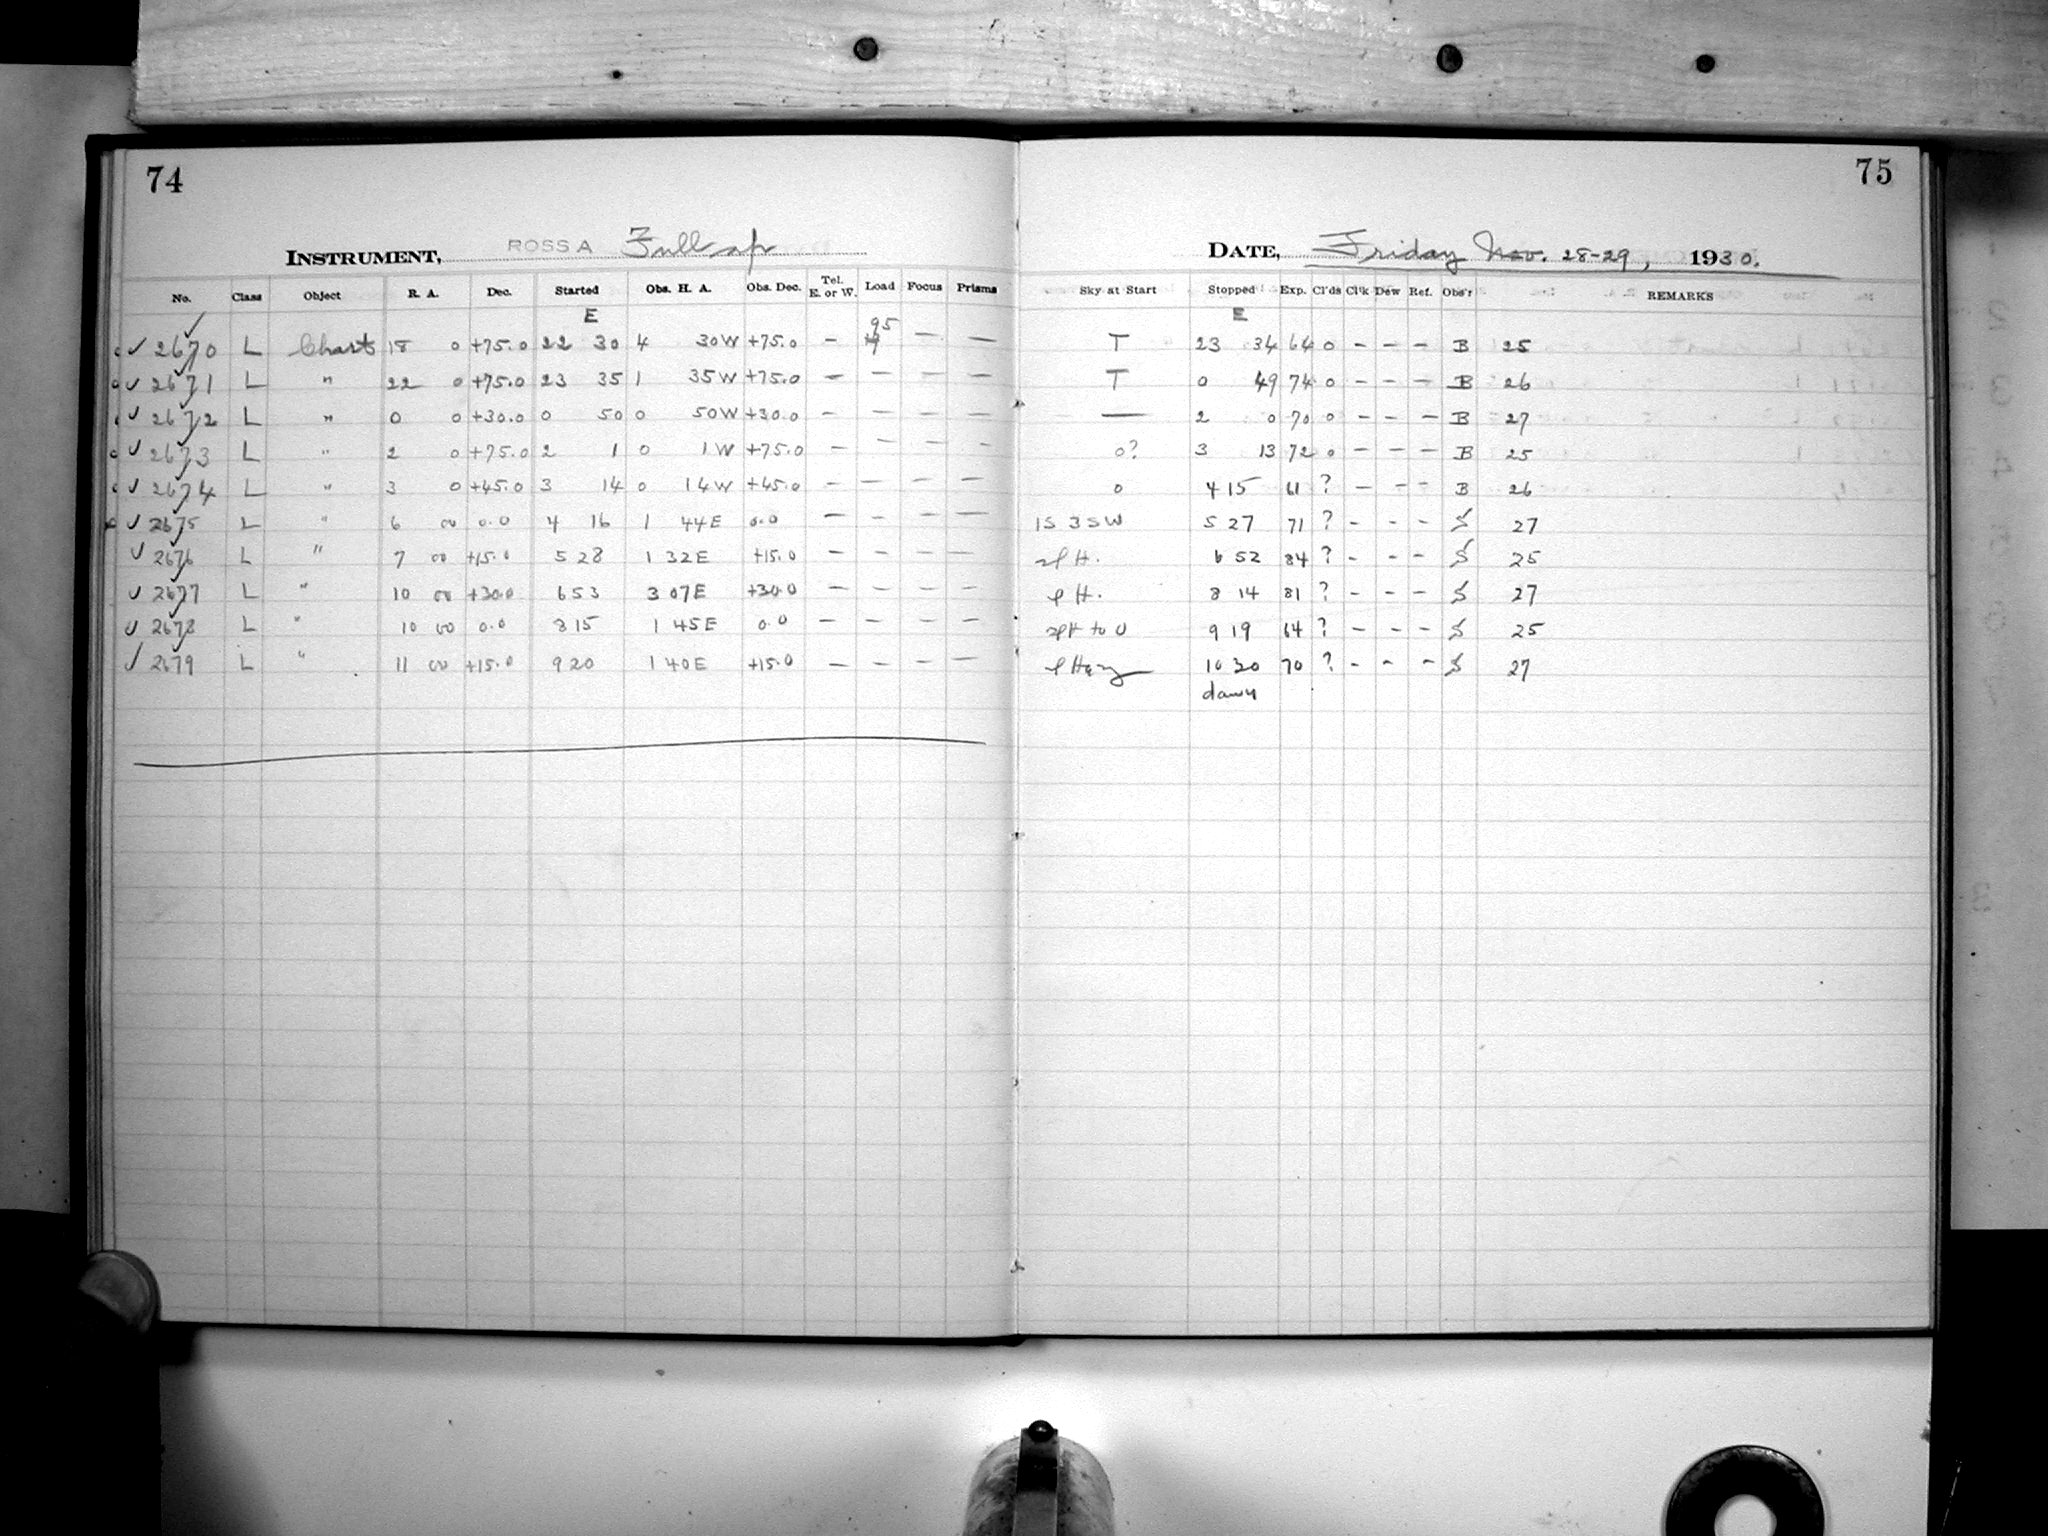 74
75
INSTRUMENT, ROSS A Full ap
DATE, Friday Nov. 28-29, 1930.
No. Class Object R. A. Dec. Started Obs. H. A. Obs. Dec. Tel. E. or W. Load Focus Prisms Sky at Start Stopped Exp. Cl'ds Cl'k Dew Ref. Obs'r REMARKS
E E
✓ 2670 L Chart 18 0 +75.0 22 30 4 30W +75.0 – 95 — — T 23 34 64 0 – – – B 25
✓ 2671 L " 22 0 +75.0 23 35 1 35W +75.0 – – – — T 0 49 74 0 – – – B 26
✓ 2672 L " 0 0 +30.0 0 50 0 50W +30.0 – – – — — 2 0 70 0 – – – B 27
✓ 2673 L " 2 0 +75.0 2 1 0 1W +75.0 – – – – 0? 3 13 72 0 – – – B 25
✓ 2674 L " 3 0 +45.0 3 14 0 14W +45.0 – – – – 0 4 15 61 ? – – – B 26
✓ 2675 L " 6 00 0.0 4 16 1 44E 0.0 – – – — 1S 3SW 5 27 71 ? – – – S 27
✓ 2676 L " 7 00 +15.0 5 28 1 32E +15.0 – – – — H. 6 52 84 ? – – – S 25
✓ 2677 L " 10 00 +30.0 6 53 3 07E +30.0 – – – – H. 8 14 81 ? – – – S 27
✓ 2678 L " 10 00 0.0 8 15 1 45E 0.0 – – – – to 0 9 19 64 ? – – – S 25
✓ 2679 L " 11 00 +15.0 9 20 1 40E +15.0 – – – — Hazy 10 30 70 ? – – – S 27
dawn